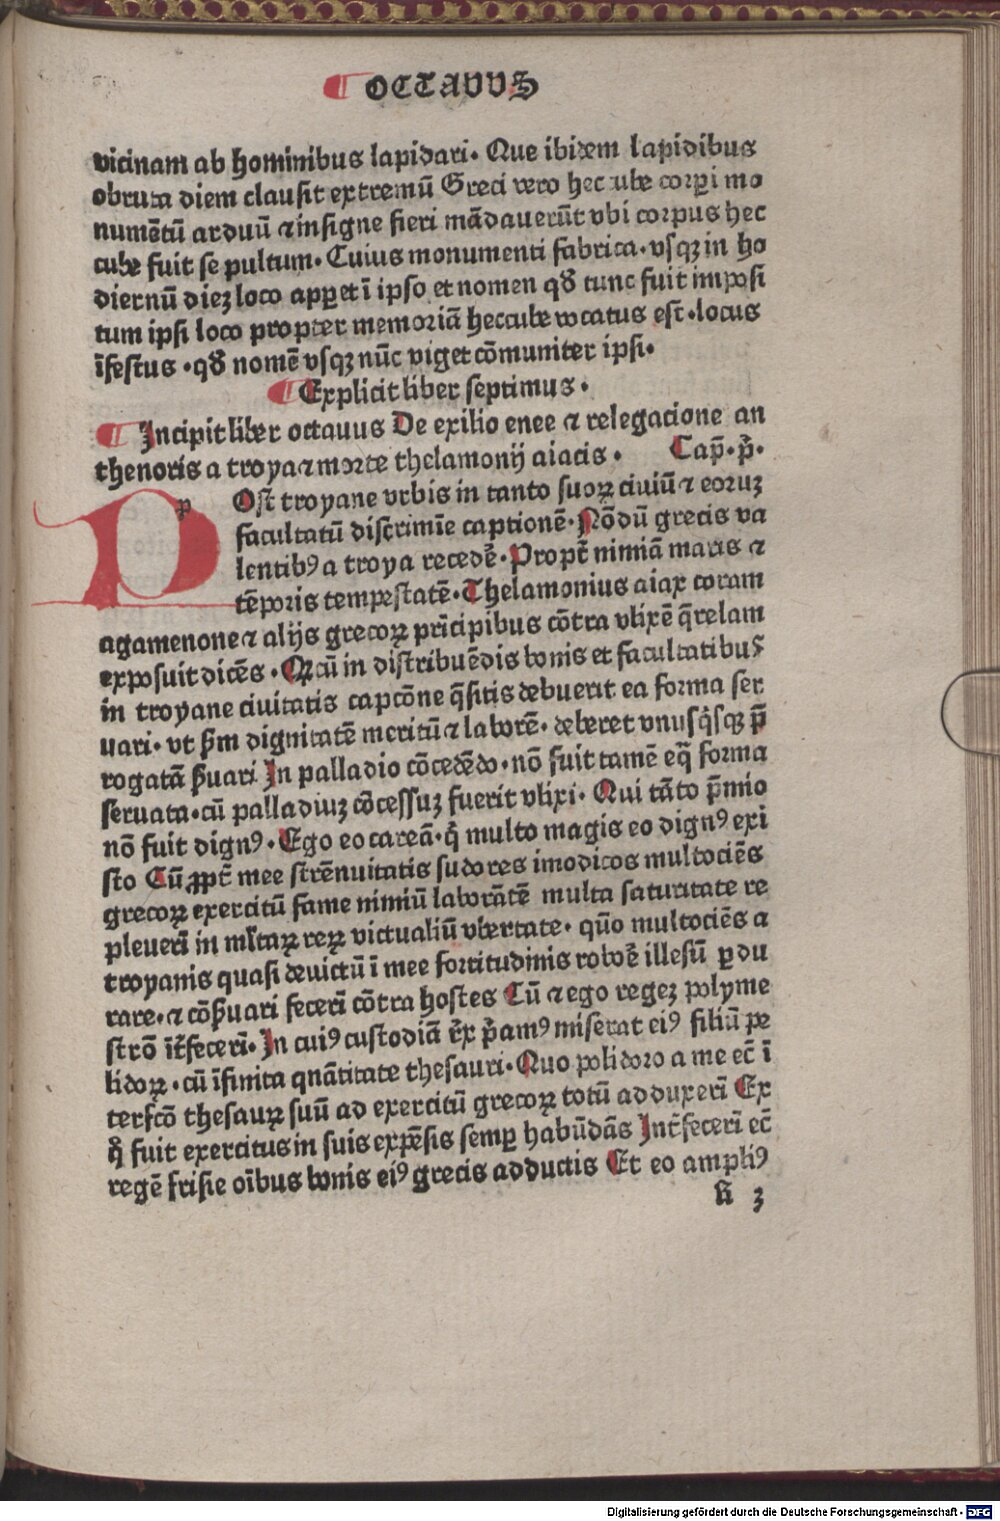 ¶ OCTAVVS
vicinam ab hominibus lapidari. Que ibidem lapidibus
obruta diem clausit extremū Greci vero hec ube corpi mo
numētū arduū ⁊ insigne fieri mādauerūt vbi corpus hec
cube fuit se pultum. Cuius monumenti fabrica. vsqꝫ in ho
diernū dieꝫ loco apꝑet ī ipso et nomen qđ tunc fuit imposi
tum ipsi loco propter memoriā heccube vocatus est. locus
īfestus. qđ nomē vsqꝫ nūc viget cōmuniter ipsi.
¶ Explicit liber septimus.
¶ Incipit liber octauus De exilio enee ⁊ relegacione an
thenoris a troya ⁊ morte thelamonij aiacis. Cap̄. p̄.
POst troyane vrbis in tanto suoꝝ ciuiū ⁊ eoruꝫ
facultatū discrimīe captionē. Nōdū grecis va
lentibꝰ a troya recedē. Propt̄ nimiā maris ⁊
tēporis tempestatē. Thelamonius aiax coram
agamenone ⁊ alijs grecoꝝ prīcipibus cōtra vlixē q̄relam
exposuit dicēs. Qꝫ cū in distribuēdis bonis et facultatibus
in troyane ciuitatis capcōne q̄sitis debuerit ea forma ser
uari. vt ẜm dignitatē meritū ⁊ laborē. deberet vnusq̇sqꝫ p̄
rogatā ẜuari In palladio cōcedēdo. nō fuit tamē eq̄ forma
seruata. cū palladiuꝫ cōcessuꝫ fuerit vlixi. Qui tāto p̄mio
nō fuit dignꝰ. Ego eo careā. q̇ multo magis eo dignꝰ exi
sto Cū ꝓpt̄ mee strēnuitatis sudores imodicos multociēs
grecoꝝ exercitū fame nimiū laborātē multa saturitate re
pleuerī in ml̄taꝝ reꝝ victualiū vbertate. quō multociēs a
troyanis quasi deuictū ī mee fortitudinis robore illesū ꝑdu
rare. ⁊ cōẜuari fecerī cōtra hostes Cū ⁊ ego regeꝫ polyme
strō īt̄fecerī. In cuiꝰ custodiā r̄ex p̄amꝰ miserat eiꝰ filiū pe
lidoꝝ. cū īfinita quātitate thesauri. Quo polidoro a me ec̄ ī
terfc̄o thesauꝝ suū ad exercitū grecoꝝ totū adduxerī Ex
q̇ fuit exercitus in suis expēsis semꝑ habūdās Int̄fecerī ec̄
regē frisie oībus bonis eiꝰ grecis adductis Et eo ampliꝰ